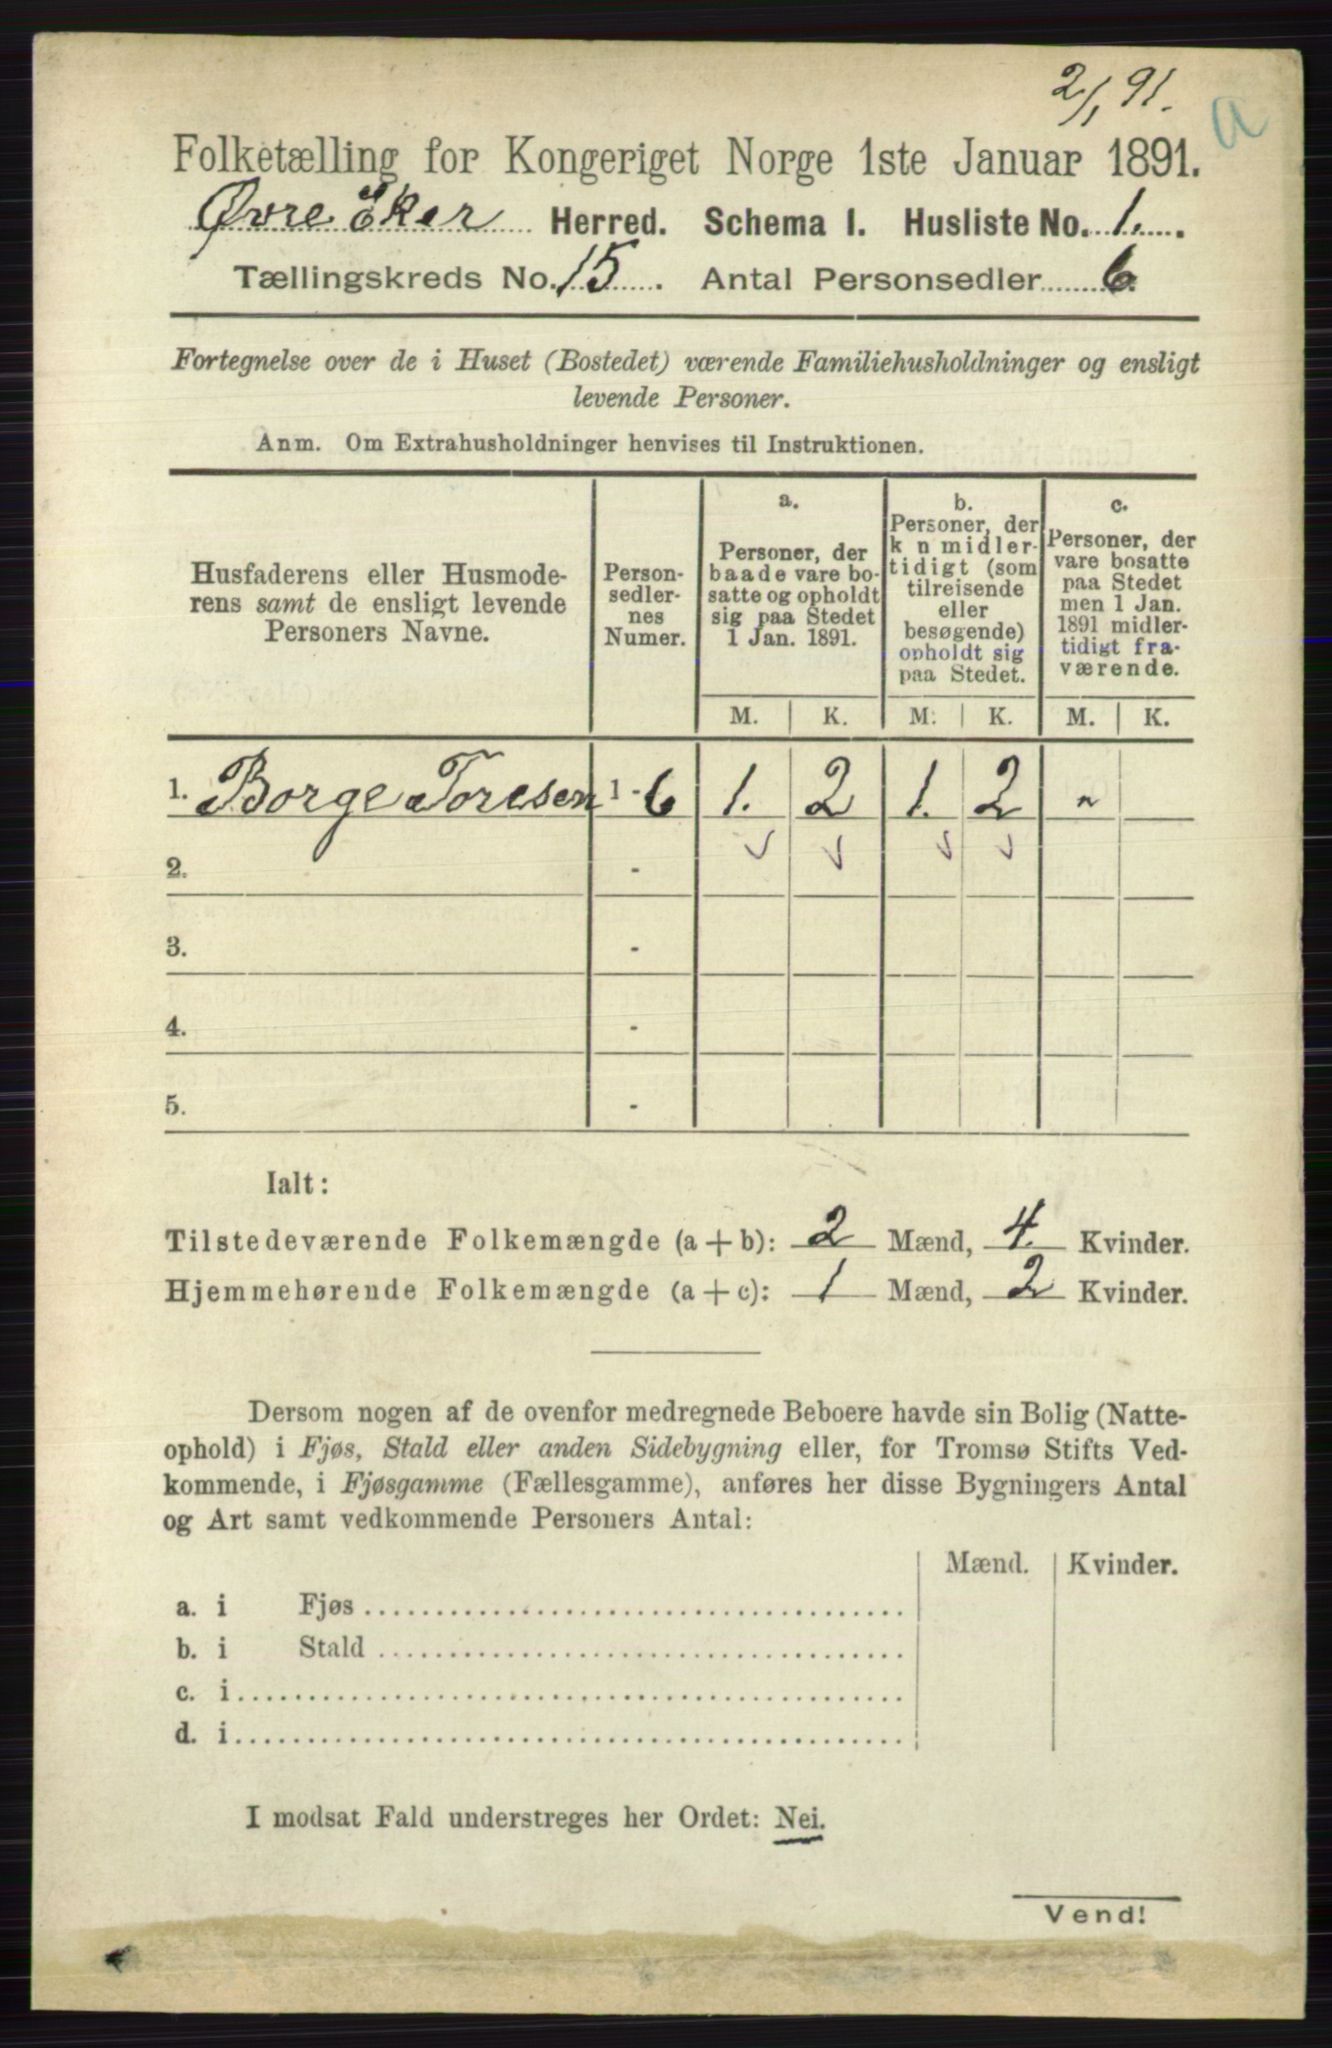 2/1 91.
a
Folketælling for Kongeriget Norge 1ste Januar 1891.
Øvre Eker Herred. Schema I. Husliste No. 1.
Tællingskreds No. 15. Antal Personsedler 6.
Fortegnelse over de i Huset (Bostedet) værende Familiehusholdninger og ensligt
levende Personer.
Anm. Om Extrahusholdninger henvises til Instruktionen.
Husfaderens eller Husmode-
rens samt de ensligt levende
Personers Navne.
Person-
sedler-
nes
Numer.
a.
Personer, der
baade vare bo-
satte og opholdt
sig paa Stedet
1 Jan. 1891.
b.
Personer, der
k n midler-
tidigt (som
tilreisende
eller
besøgende)
opholdt sig
paa Stedet.
c.
Personer, der
vare bosatte
paa Stedet
men 1 Jan.
1891 midler-
tidigt fra-
værende.
M. K. M. K. M. K.
1. Borge Toresen 1 - 6 1. 2 1. 2 "
2. -
3. -
4. -
5. -
Ialt:
Tilstedeværende Folkemængde (a + b): 2 Mænd, 4. Kvinder.
Hjemmehørende Folkemængde (a + c): 1 Mænd, 2 Kvinder.
Dersom nogen af de ovenfor medregnede Beboere havde sin Bolig (Natte-
ophold) i Fjøs, Stald eller anden Sidebygning eller, for Tromsø Stifts Ved-
kommende, i Fjøsgamme (Fællesgamme), anføres her disse Bygningers Antal
og Art samt vedkommende Personers Antal:
Mænd. Kvinder.
a. i Fjøs
b. i Stald
c. i
d. i
I modsat Fald understreges her Ordet: Nei.
Vend!